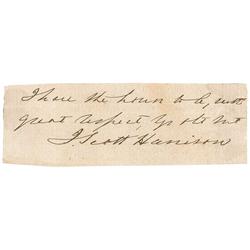 I have the honor to be, with
great respect, yr obt svt
J. Scott Harrison